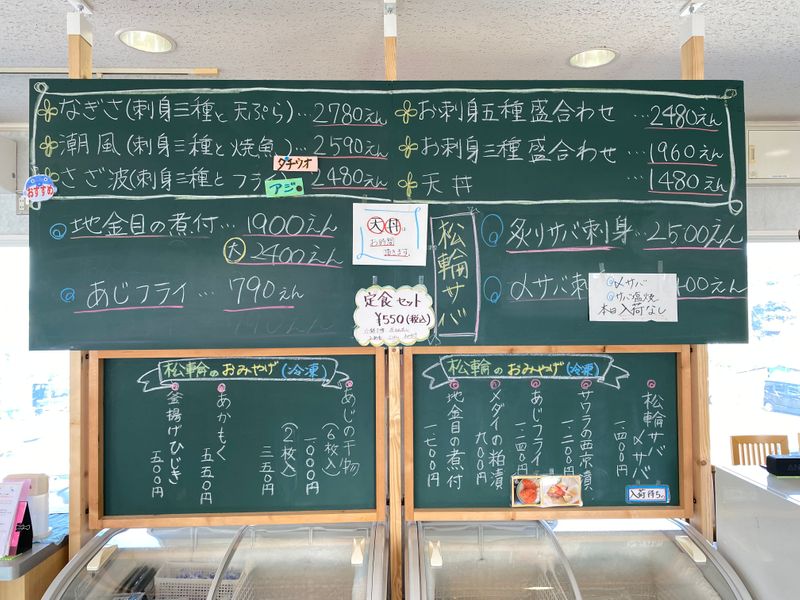 なぎさ(刺身三種と天ぷら)…2780えん
潮風(刺身三種と焼魚)…2590えん
タチウオ
さざ波(刺身三種とフライ 2480えん
アジ
おすすめ
お刺身五種盛合わせ …2480えん
お刺身三種盛合わせ …1960えん
天丼 …1480えん
地金目の煮付…1900えん
大 2400えん
あじフライ…790えん
天丼は
お時間
頂きます。
定食セット
¥550(税込)
松輪サバ
炙りサバ刺身…2500えん
〆サバ刺 00えん
〆サバ
サバ塩焼
本日入荷なし
松輪のおみやげ(冷凍)
あじの干物
(6枚入)
1000円
(2枚入)
三五〇円
あかもく
五五〇円
釜揚げひじき
五〇〇円
松輪のおみやげ(冷凍)
松輪サバ
〆サバ
一四〇〇円
入荷待ち
サワラの西京漬
一二〇〇円
あじフライ
メダイの粕漬
九〇〇円
地金目の煮付
一七〇〇円